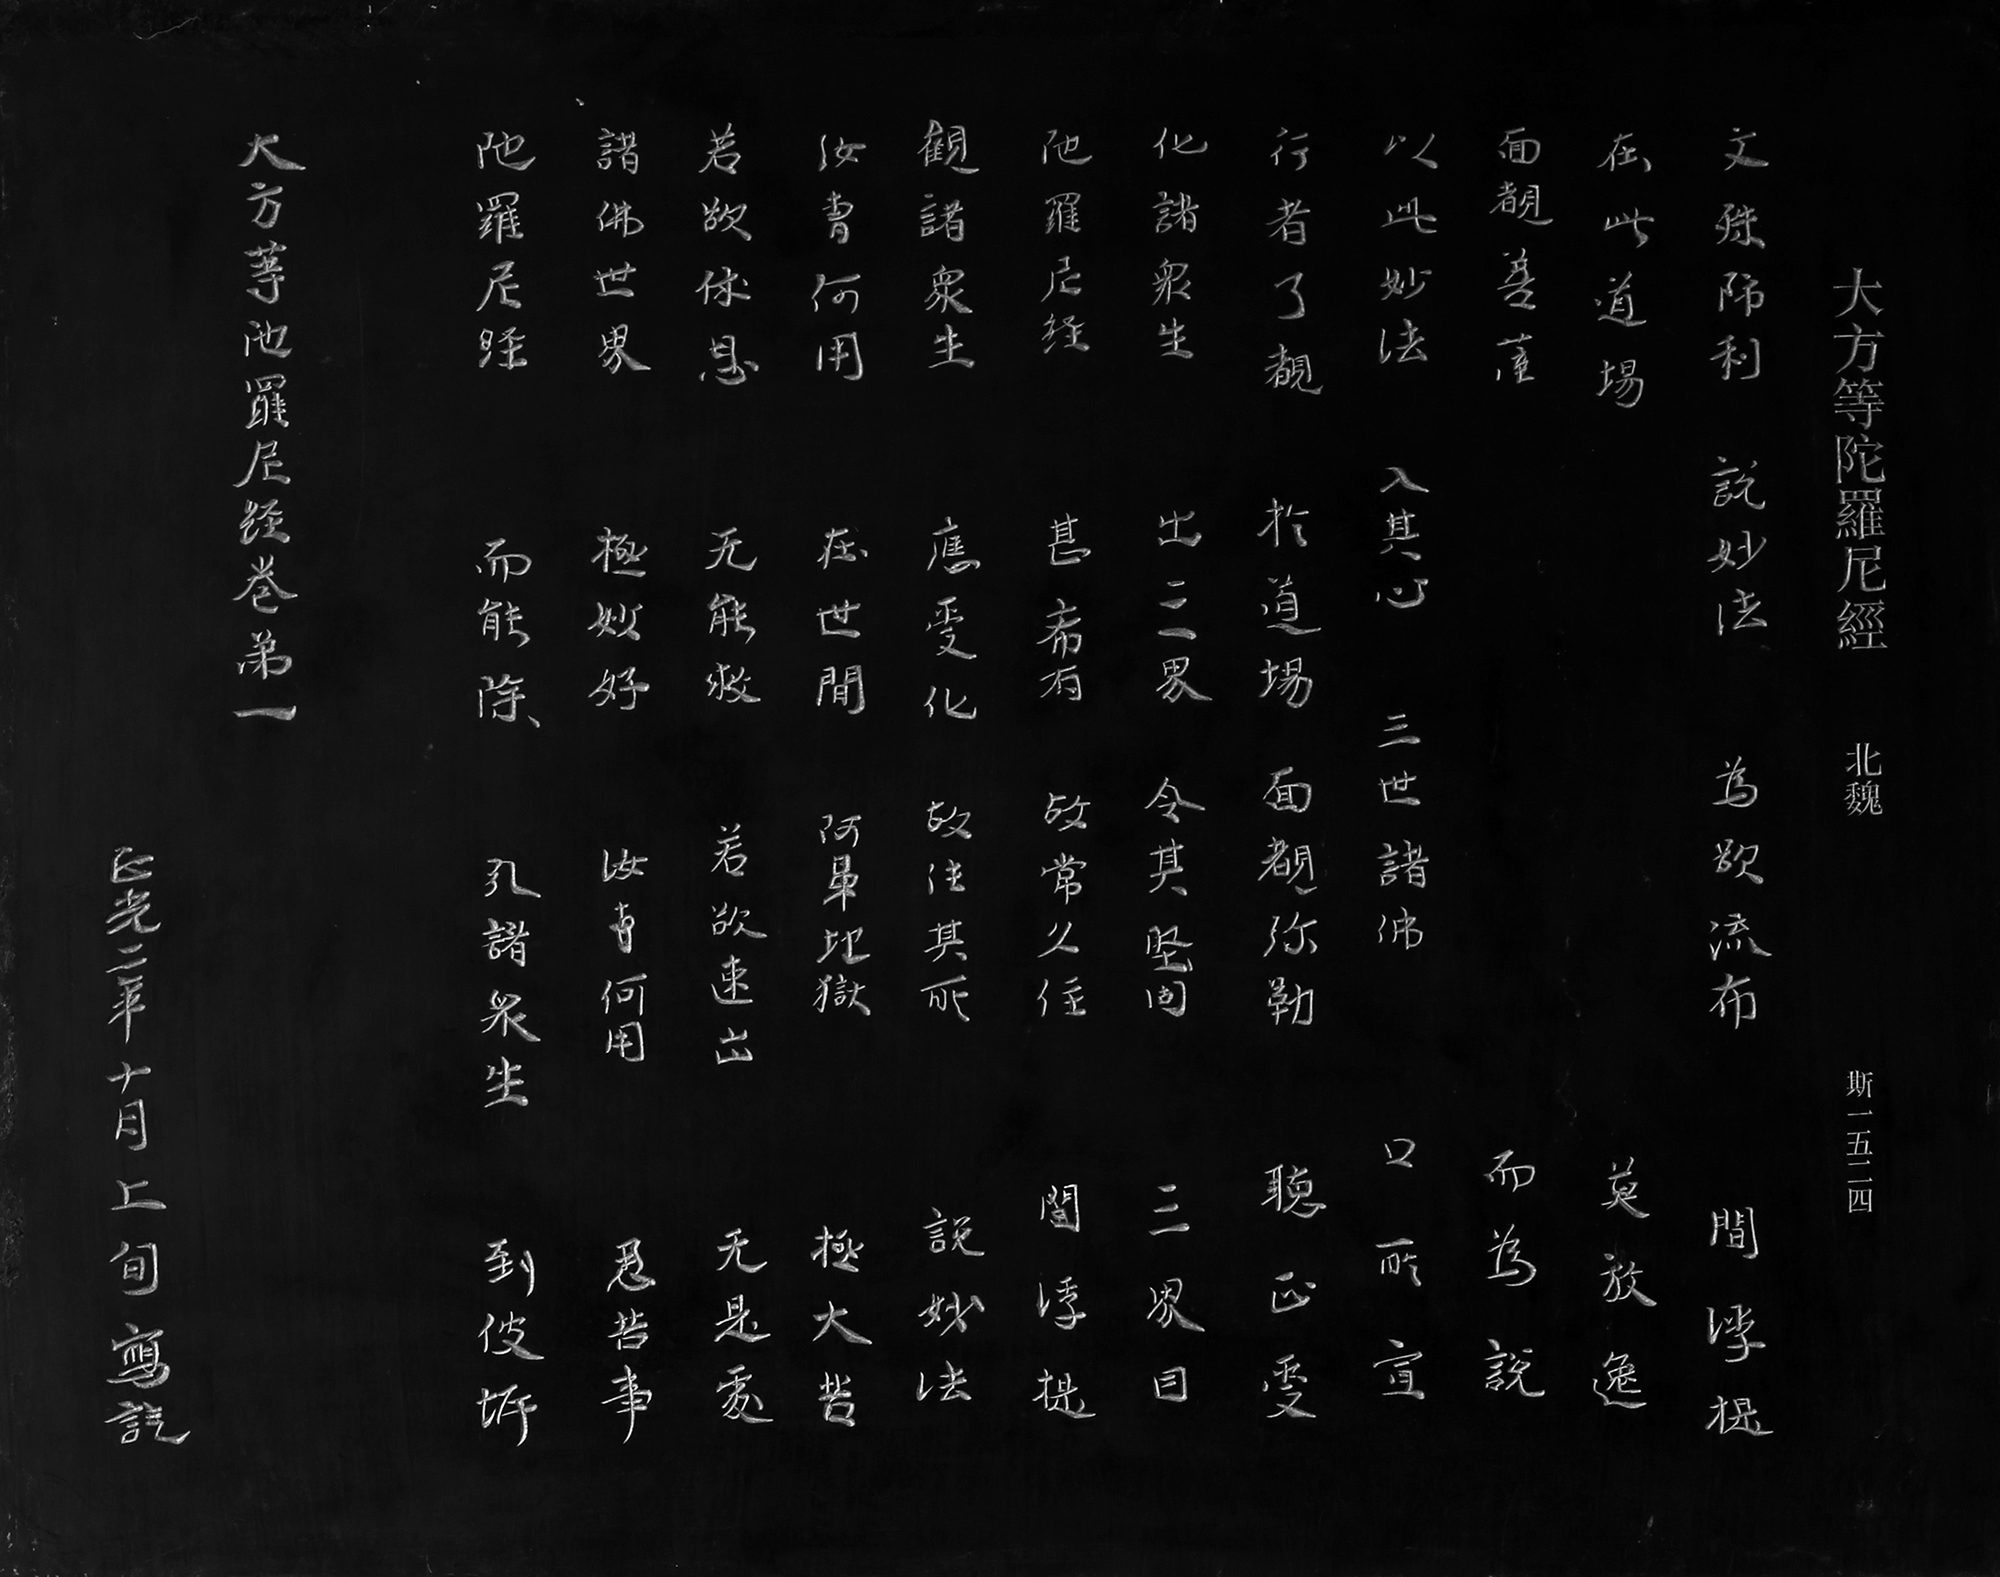 大方等陀羅尼經 北魏 斯一五二四
文殊師利 說妙法 為欲流布 閻浮提
在此道場 莫放逸
面覩菩薩 而為說
以此妙法 入其心 三世諸佛 口所宣
行者了覩 於道場 面覩弥勒 聽正受
化諸衆生 出二界 令其堅固 三界目
陁羅尼経 甚希有 故常久住 閻浮提
觀諸衆生 應受化 故往其所 說妙法
汝曹何用 在世間 阿鼻地獄 極大苦
若欲休息 无能救 若欲速出 无是處
諸佛世界 極妙好 汝曹何用 忍苦事
陁羅尼経 而能除 孔諸衆生 到彼岸
大方等陁羅尼経卷第一
正光二年十月上旬寫訖